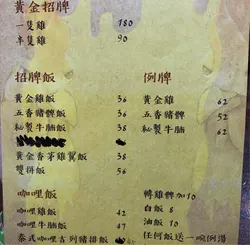 黃金招牌
一隻雞 180
半隻雞 90
招牌飯
黃金雞飯 56
五香豬髀飯 56
秘製牛腩飯 56
黃金香茅雞翼飯 58
雙拼飯 56
例牌
黃金雞 62
五香豬髀 62
秘製牛腩 62
咖哩飯
咖哩雞飯 42
咖哩牛腩飯 47
泰式咖哩吉列豬排飯
轉雞髀加10
白飯 8
油飯 10
任何飯送一碗例湯